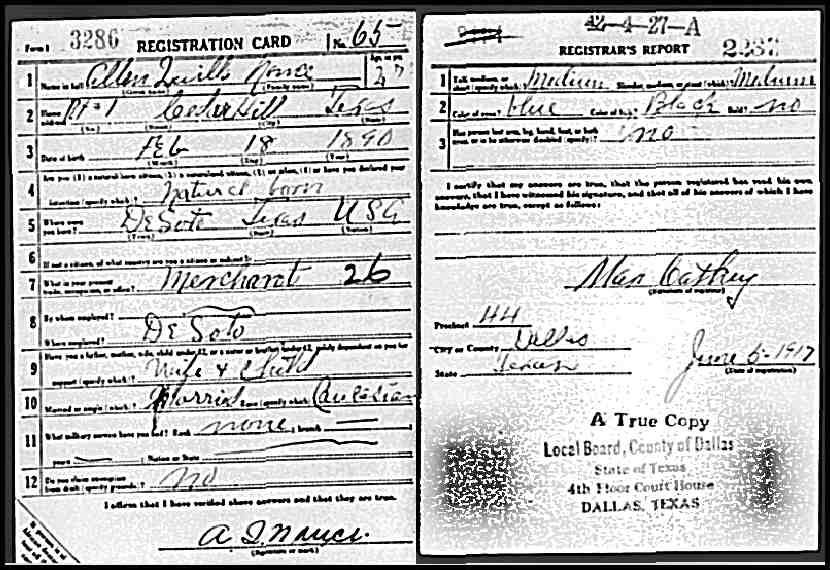 Form 1 3286 REGISTRATION CARD No. 65
1 Name in full Allen Age, in yrs. 27
(Given name) (Family name)
2 Home address Rt #1 Cedar Hill Texas
(No.) (Street) (City) (State)
3 Date of birth FEb 18 1890
(Month) (Day) (Year)
4 Are you (1) a natural-born citizen, (2) a naturalized citizen, (3) an alien, (4) or have you declared your
intention (specify which)? natural born
5 Where were you born? DeSoto Texas USA
(Town) (State) (Nation)
6 If not a citizen, of what country are you a citizen or subject?
7 What is your present trade, occupation, or office? Merchant 26
8 By whom employed?
Where employed? DeSoto
9 Have you a father, mother, wife, child under 12, or a sister or brother under 12, solely dependent on you for
support (specify which)? Wife & Child
10 Married or single (which)? Race (specify which)? Caucasian
11 What military service have you had? Rank none branch
years Nation or State
12 Do you claim exemption from draft (specify grounds)? No
I affirm that I have verified above answers and that they are true.
(Signature or mark)
42-4-27-A
REGISTRAR'S REPORT
1 Tall, medium, or short (specify which)? Medium Slender, medium, or stout (which)? Medium
2 Color of eyes? blue Color of hair? Black Bald? no
3 Has person lost arm, leg, hand, foot, or both eyes, or is he otherwise disabled (specify)? no
I certify that my answers are true, that the person registered has read his own
answers, that I have witnessed his signature, and that all of his answers of which I have
knowledge are true, except as follows:
(Signature of registrar)
Precinct 44
City or County Dallas
State Texas
June 5-1917
(Date of registration)
A True Copy
Local Board, County of Dallas
State of Texas
4th Floor Court House
DALLAS, TEXAS